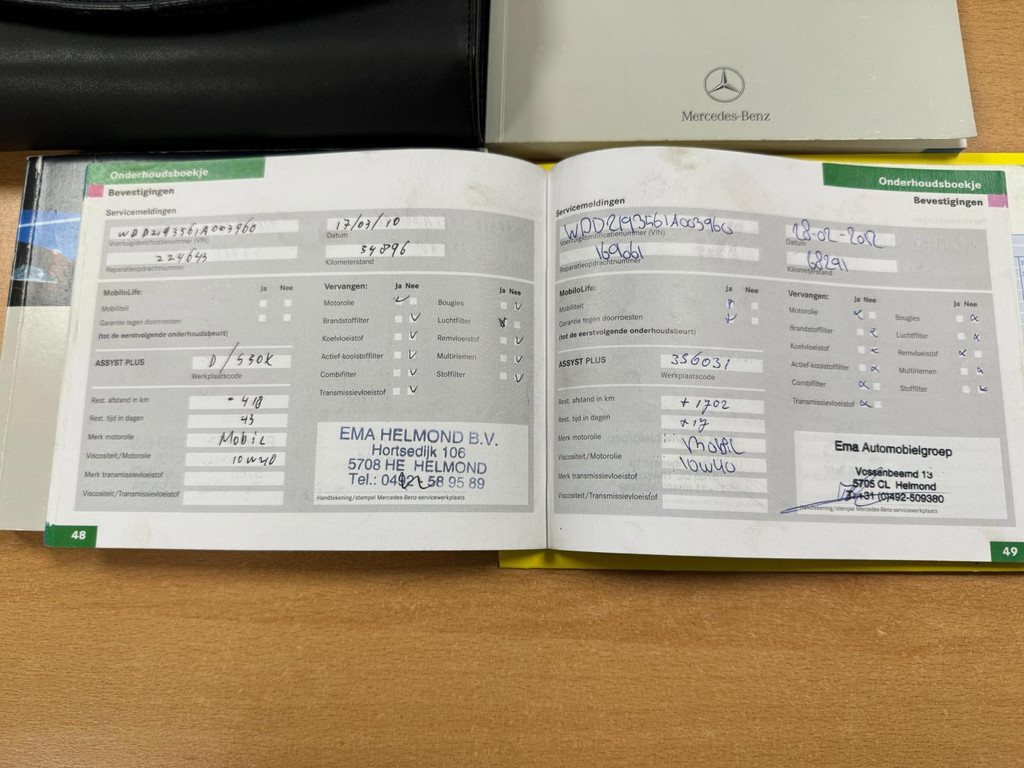 Mercedes-Benz
Onderhoudsboekje
Bevestigingen
Servicemeldingen
WDD2193561A003960
Voertuigidentificatienummer (VIN)
17/03/10
Datum
224643
Reparatieopdrachtnummer
34896
Kilometerstand
MobiloLife:
Ja Nee
Mobiliteit
Garantie tegen doorroesten
(tot de eerstvolgende onderhoudsbeurt)
Vervangen:
Ja Nee
Motorolie
Brandstoffilter
Koelvloeistof
Actief-koolstoffilter
Combifilter
Transmissievloeistof
Ja Nee
Bougies
Luchtfilter
Remvloeistof
Multiriemen
Stoffilter
ASSYST PLUS
Werkplaatscode
Rest. afstand in km
- 418
Rest. tijd in dagen
43
Merk motorolie
Mobil
Viscositeit/Motorolie
10W40
Merk transmissievloeistof
Viscositeit/Transmissievloeistof
EMA HELMOND B.V.
Hortsedijk 106
5708 HE HELMOND
Tel.: 0492 58 95 89
Handtekening/stempel Mercedes-Benz-servicewerkplaats
48
Onderhoudsboekje
Bevestigingen
Servicemeldingen
WDD2193561A003960
Voertuigidentificatienummer (VIN)
28-02-2012
Datum
169061
Reparatieopdrachtnummer
68291
Kilometerstand
MobiloLife:
Ja Nee
Mobiliteit
Garantie tegen doorroesten
(tot de eerstvolgende onderhoudsbeurt)
Vervangen:
Ja Nee
Motorolie
Brandstoffilter
Koelvloeistof
Actief-koolstoffilter
Combifilter
Transmissievloeistof
Ja Nee
Bougies
Luchtfilter
Remvloeistof
Multiriemen
Stoffilter
ASSYST PLUS
356031
Werkplaatscode
Rest. afstand in km
+1702
Rest. tijd in dagen
+17
Merk motorolie
Mobil
Viscositeit/Motorolie
10W40
Merk transmissievloeistof
Viscositeit/Transmissievloeistof
Ema Automobielgroep
Vossenbeemd 13
5705 CL Helmond
T: +31 (0)492-509380
Handtekening/stempel Mercedes-Benz-servicewerkplaats
49